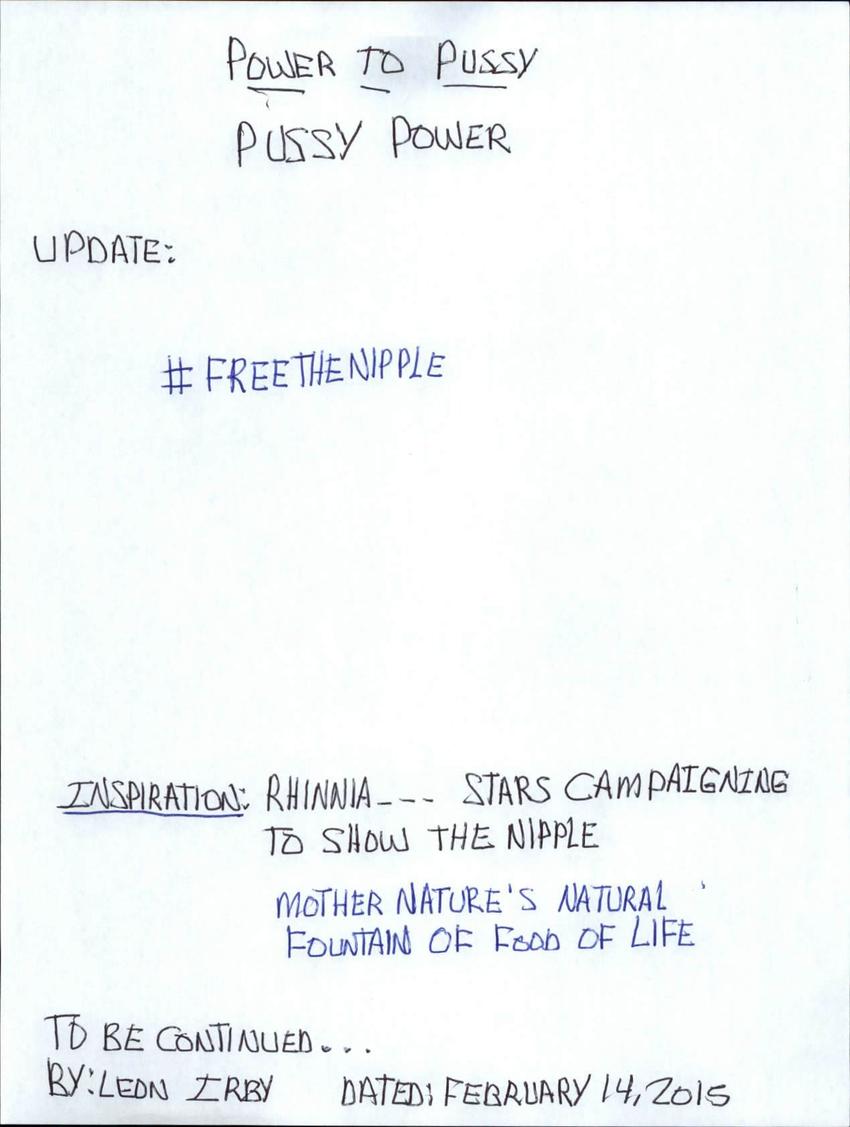 POWER TO PUSSY
PUSSY POWER
UPDATE:
# FREETHENIPPLE
INSPIRATION: RHINNIA--- STARS CAMPAIGNING
TO SHOW THE NIPPLE
MOTHER NATURE'S NATURAL
FOUNTAIN OF FOOD OF LIFE
TO BE CONTINUED...
BY: LEON IRBY DATED: FEBRUARY 14, 2015